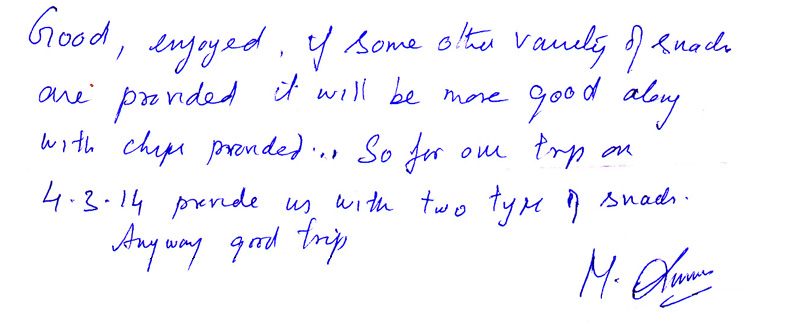 Good, enjoyed, if some other variety of snacks
are provided it will be more good along
with chips provided... So for our trip on
4.3.14 provide us with two type of snacks.
Anyway good trip
M.